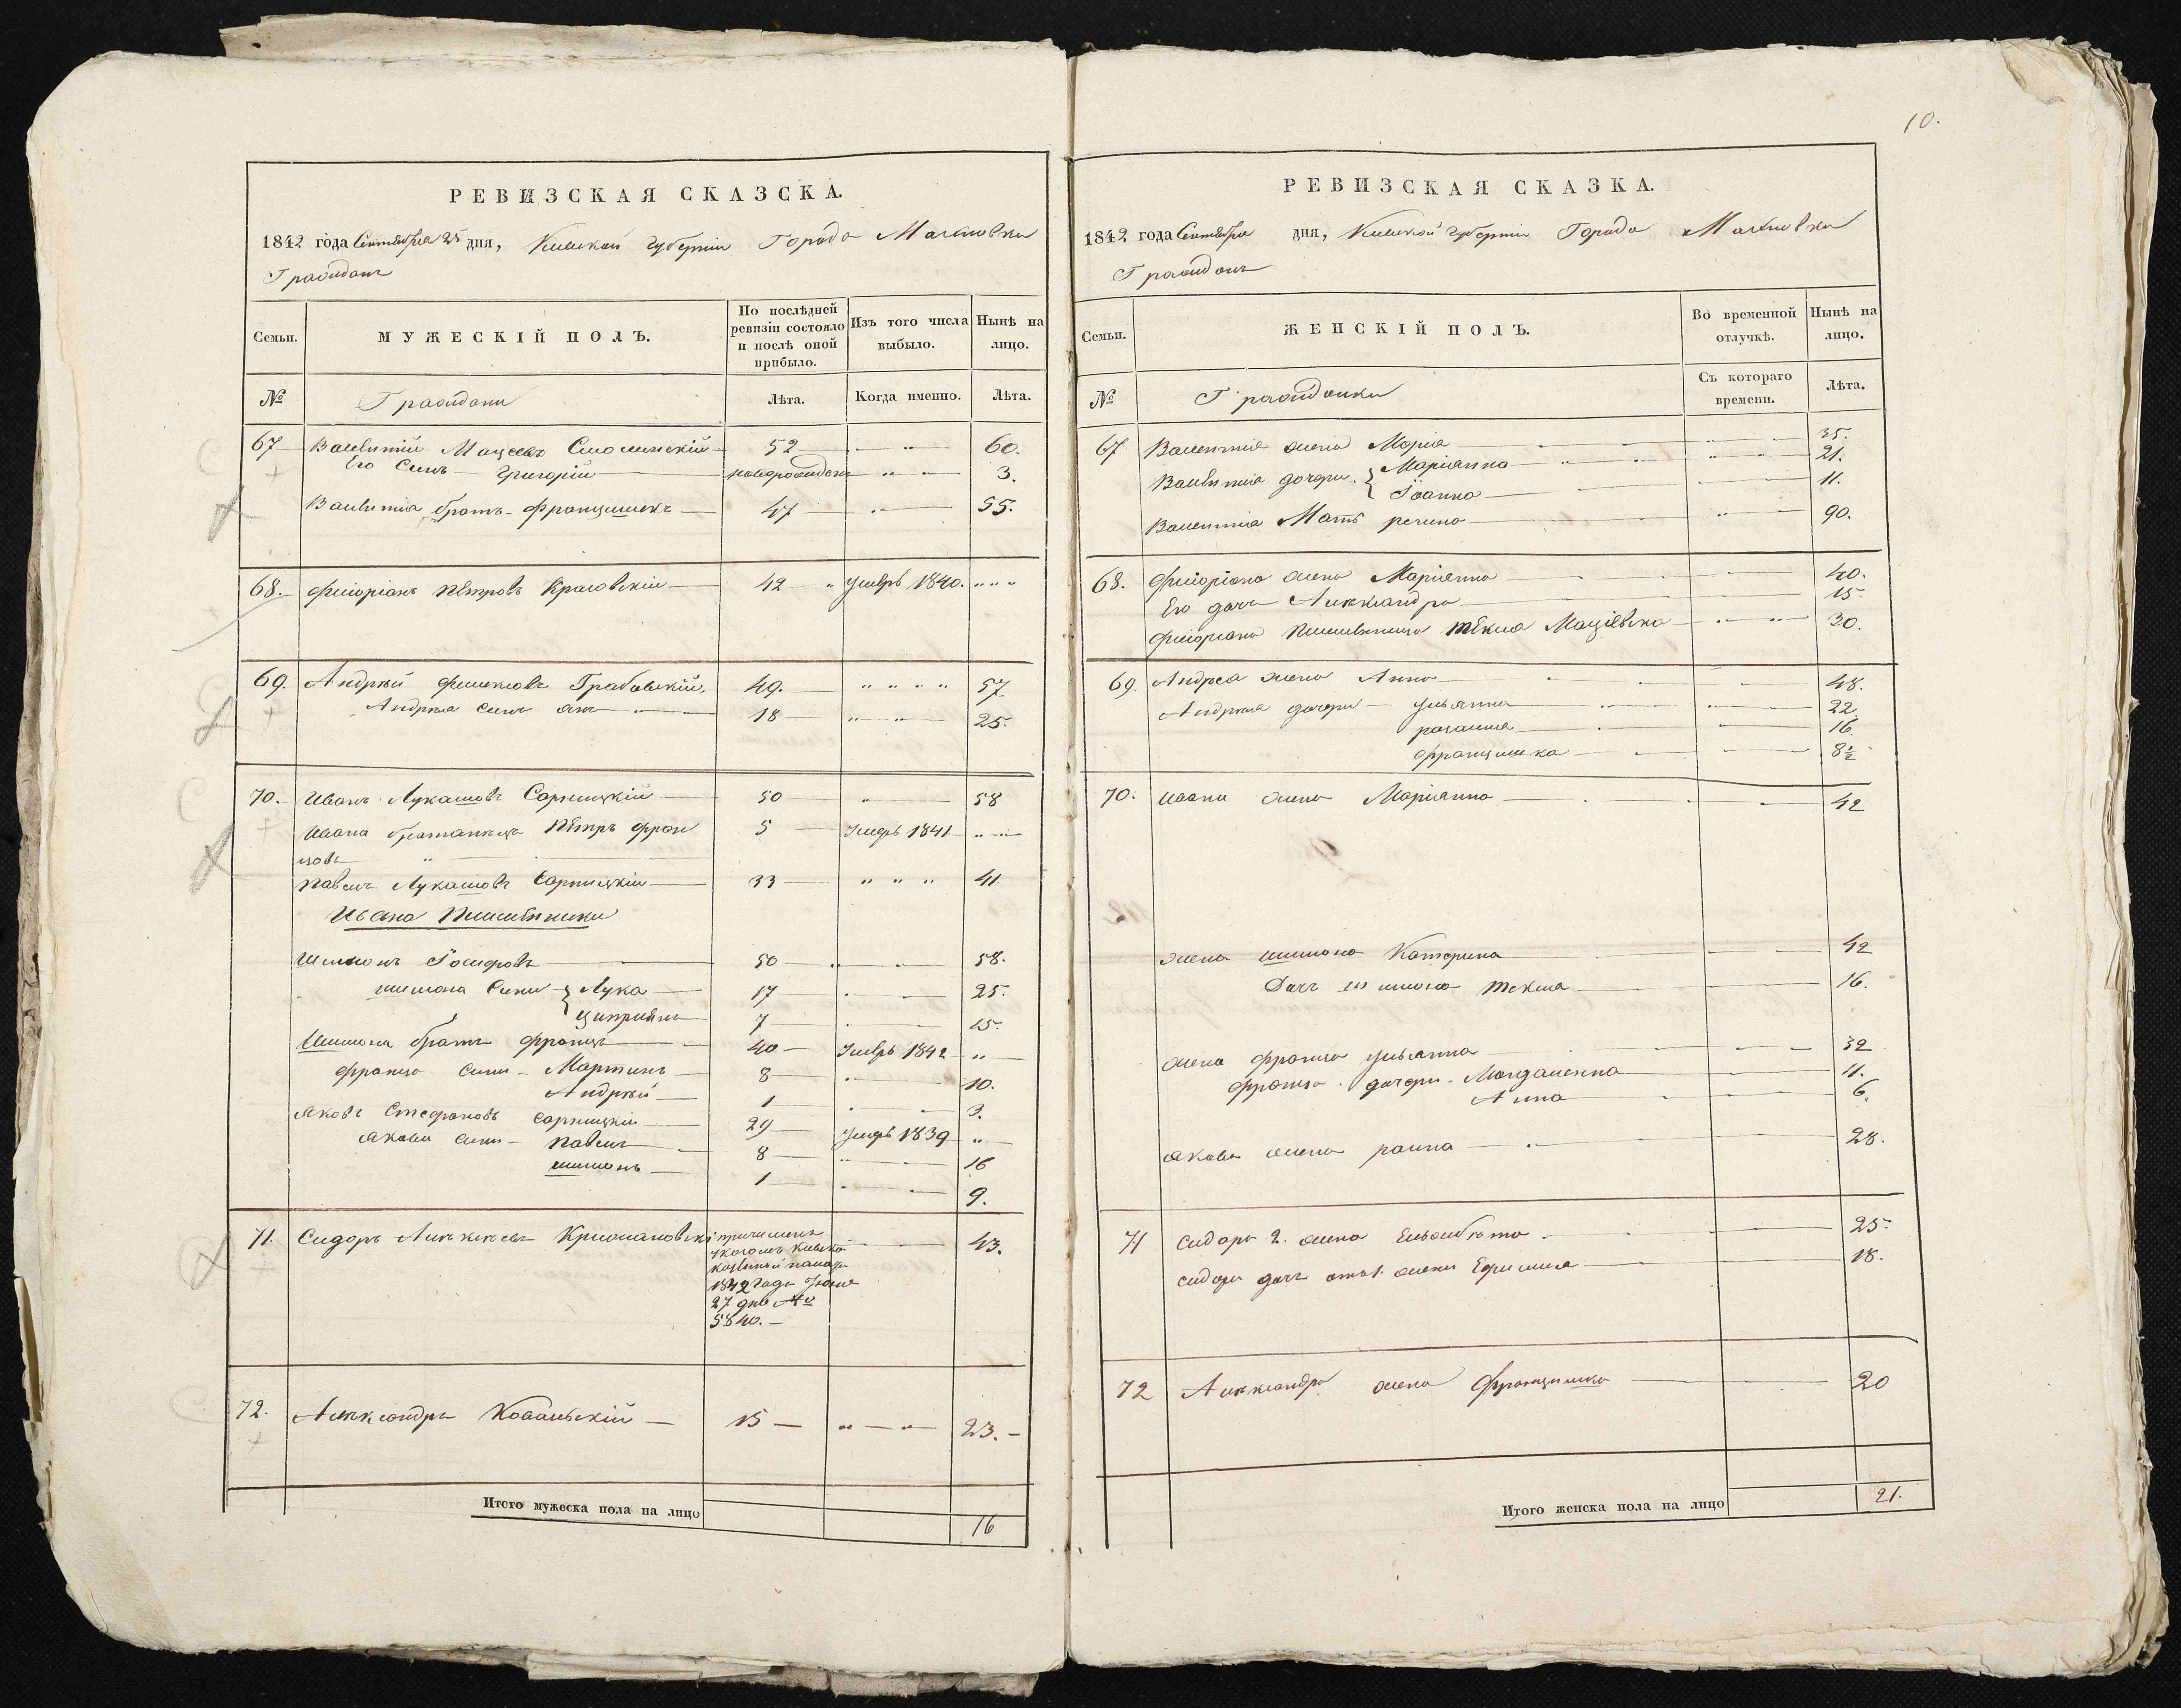 РЕВИЗСКАЯ СКАЗСКА.
1842 года Сентября 25 дня, Кіевской Губерніи Города Махновки
Граждане
Семьи.
МУЖЕСКІЙ ПОЛЪ.
По послѣдней ревизіи состояло и послѣ оной прибыло.
Изъ того числа выбыло.
Нынѣ на лицо.
№
Граждани
Лѣта.
Когда именно.
Лѣта.
67 Валентій Мацеевъ 52 60.
Его Сынъ Григорій новорожденъ 3.
Валентія братъ Францишекъ 47 55.
68. Флоріанъ Петровъ 42 умеръ 1840.
69. Андрѣй Грабовскій 49. 57
Андрѣя сынъ Янъ 18 25.
70. Иванъ Лукашовъ Сарницкій 50 58
Ивана братанецъ Петръ Фран 5 Умеръ 1841
цовъ
Павелъ Лукашовъ Сарницкій 33 41
Ивана Племенники
Шимонъ Іосифовъ 50 58.
Шимона Сыни Лука 17 25.
Циприянъ 7 15.
Шимона братъ Францъ 40 Умеръ 1842
Франца Сыни Мартинъ 8 10.
Андрѣй 1 3.
Яковъ Стефановъ Сарницкій 29 умеръ 1839
Якова Сыни Павелъ 8 16
Шимонъ 1 9.
71. Сидоръ Алексѣевъ причисленъ 43.
указомъ Кіевской
казенной палаты
1842 Года Іюня
27 дня №
5840.
72. Александръ Ковальскій 15 23.
Итого мужеска пола на лицо
16
10.
РЕВИЗСКАЯ СКАЗКА.
1842 года Сентября дня, Кіевской Губерніи Города Махновки
Гражданъ
Семьи.
ЖЕНСКІЙ ПОЛЪ.
Во временной отлучкѣ.
Нынѣ на лицо.
№
Гражданки
Съ котораго времени.
Лѣта.
67 Валентія жена Марія 35.
Валентія дочери Маріанна 21.
Іоанна 11.
Валентія Мать 90.
68. Флоріана жена Маріанна 40.
Его дочь Александра 15.
Флоріана Племенница Текля 30.
69. Андрея жена Анна 48.
Андрѣя дочери Ульянна 22.
Розалия 16.
Францишка 8½
70. Ивана жена Маріанна 42
жена Шимона Катерина 42
Дочь Шимона Текля 16.
жена Франца Ульянна 32
Франца дочери Магдаленна 11.
Анна 6.
Якова жена 28.
71 Сидора 2. жена Ельжбѣта 25.
Сидора дочь отъ 1. жены 18.
72 Александра жена Францишка 20
Итого женска пола на лицо
21.